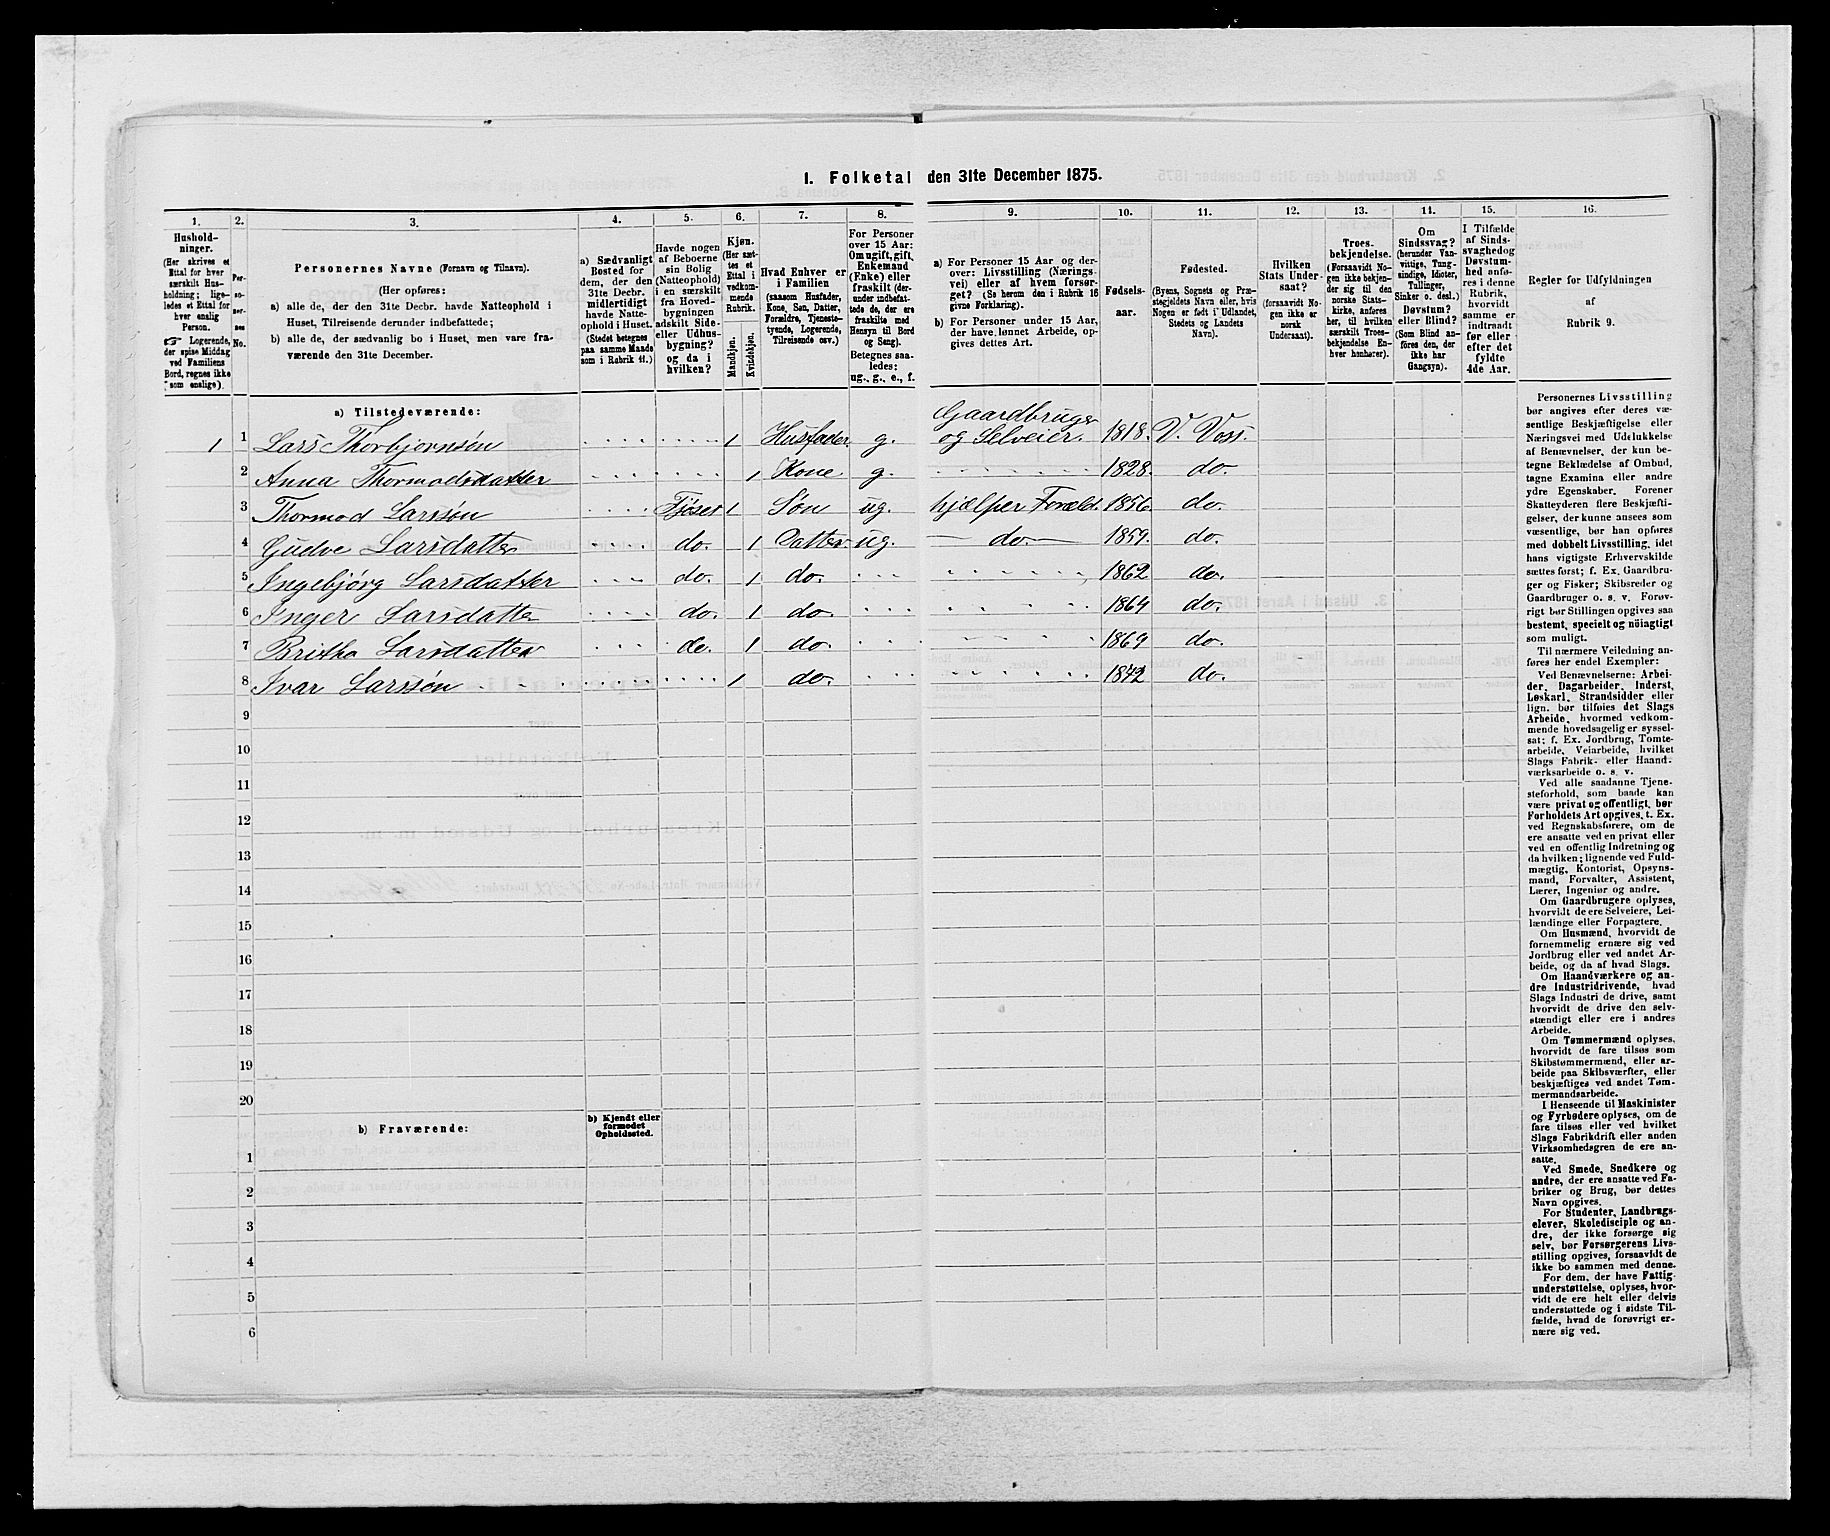 I. Folketal den 31te December 1875.
1. 2. 3. 4. 5. 6. 7. 8. 9. 10. 11. 12. 13. 14. 15. 16.
Hushold-
ninger.
(Her skrives et
Ettal for hver
særskilt Hus-
holdning; lige-
ledes et Ettal for
hver enslig
Person.
☞ Logerende,
der spise Middag
ved Familiens
Bord, regnes ikke
som enslige).
Per-
so-
ner-
nes
No.
Personernes Navne (Fornavn og Tilnavn).
(Her opføres:
a) alle de, der den 31te Decbr. havde Natteophold i
Huset, Tilreisende derunder indbefattede;
b) alle de, der sædvanlig bo i Huset, men vare fra-
værende den 31te December.
a) Sædvanligt
Bosted for
dem, der den
31te Decbr.
midlertidigt
havde Natte-
ophold i Huset.
(Stedet betegnes
paa samme Maade
som i Rubrik 11.)
Havde nogen
af Beboerne
sin Bolig
(Natteophold)
i en særskilt
fra Hoved-
bygningen
adskilt Side-
eller Udhus-
bygning?
og da i
hvilken?
Kjøn.
(Her sæt-
tes et
Ettal i
vedkom-
mende
Rubrik.
Mandkjøn.
Kvindekjøn.
Hvad Enhver er
i Familien
(saasom Husfader,
Kone, Søn, Datter,
Forældre, Tjeneste-
tyende, Logerende,
Tilreisende osv.)
For Personer
over 15 Aar:
Om ugift, gift,
Enkemand
(Enke) eller
fraskilt (der-
under indbefat-
tede de, der ere
fraskilte med
Hensyn til Bord
og Seng).
Betegnes saa-
ledes:
ug., g., e., f.
a) For Personer 15 Aar og der-
over: Livsstilling (Nærings-
vei) eller af hvem forsør-
get? (Se herom den i Rubrik 16
givne Forklaring).
b) For Personer under 15 Aar,
der have lønnet Arbeide, op-
gives dettes Art.
Fødsels-
aar.
Fødested.
(Byens, Sognets og Præ-
stegjeldets Navn eller, hvis
Nogen er født i Udlandet,
Stedets og Landets
Navn).
Hvilken
Stats Under-
saat?
(forsaavidt No-
gen ikke er
norsk
Undersaat).
Troes-
bekjendelse.
(Forsaavidt No-
gen ikke bekjen-
der sig til den
norske Stats-
kirke, anføres
her, til hvilken
særskilt Troes-
bekjendelse En-
hver henhører).
Om
Sindssvag?
(herunder Van-
vittige, Tung-
sindige, Idioter,
Tullinger,
Sinker o. desl.)
Døvstum?
eller Blind?
(Som Blind an-
føres den, der
ikke har
Gangsyn).
I Tilfælde
af Sinds-
svaghed og
Døvstum-
hed anfø-
res i denne
Rubrik,
hvorvidt
samme er
indtraadt
før eller
efter det
fyldte
4de Aar.
Regler for Udfyldningen
af
Rubrik 9.
a) Tilstedeværende:
1 1 Lars Thorbjørnsøn 1 Husfader g. Gaardbruger og Selveier. 1818. V. Voss.
2 Anna Thormodsdatter 1 Kone g. 1828. do
3 Thormod Larssøn Fjøset 1 Søn ug. hjælper Foræld. 1856. do.
4 Gudve Larsdatter do. 1 Datter. ug. do. 1859. do.
5 Ingebjørg Larsdatter do. 1 do. 1862 do.
6 Inger Larsdatter do. 1 do. 1864 do.
7 Britha Larsdatter do. 1 do. 1869 do.
8 Ivar Larssøn 1 do. 1872 do.
9
10
11
12
13
14
15
16
17
18
19
20
b) Fraværende:
b) Kjendt eller
formodet
Opholdssted.
1
2
3
4
5
6
Personernes Livsstilling
bør angives efter deres væ-
sentlige Beskjæftigelse eller
Næringsvei med Udelukkelse
af Benævnelser, der kun be-
tegne Beklædelse af Ombud,
tagne Examina eller andre
ydre Egenskaber. Forener
Skatteyderen flere Beskjæfti-
gelser, der kunne ansees som
væsentlige, bør han opføres
med dobbelt Livsstilling, idet
hans vigtigste Erhvervskilde
sættes først; f. Ex. Gaardbru-
ger og Fisker; Skibsreder og
Gaardbruger o. s. v. Forøv-
rigt bør Stillingen opgives saa
bestemt, specielt og nöiagtigt
som muligt.
Til nærmere Veiledning an-
føres her endel Exempler:
Ved Benævnelserne: Arbei-
der, Dagarbeider, Inderst,
Løskarl, Strandsidder eller
lign. bør tilføies det Slags
Arbeide, hvormed vedkom-
mende hovedsagelig er syssel-
sat; f. Ex. Jordbrug, Tomte-
arbeide, Veiarbeide, hvilket
Slags Fabrik- eller Haand-
værksarbeide o. s. v.
Ved alle saadanne Tjene-
steforhold, som baade kan
være privat og offentligt, bør
Forholdets Art opgives, t. Ex.
ved Regnskabsførere, om de
ere ansatte ved en privat eller
ved en offentlig Indretning og
da hvilken; lignende ved Fuld-
mægtig, Kontorist, Opsyns-
mand, Forvalter, Assistent,
Lærer, Ingeniør og andre.
Om Gaardbrugere oplyses,
hvorvidt de ere Selveiere, Lei-
lændinge eller Forpagtere.
Om Husmænd, hvorvidt de
fornemmelig ernære sig ved
Jordbrug eller ved andet Ar-
beide, og da af hvad Slags.
Om Haandværkere og an-
dre Industridrivende, hvad
Slags Industri de drive, samt
hvorvidt de drive den selv-
stændigt eller ere i andres
Arbeide.
Om Tømmermænd oplyses,
hvorvidt de fare tilsøs som
Skibstømmermænd, eller ar-
beide paa Skibsværfter, eller
beskjæftiges ved andet Tøm-
mermandsarbeide.
I Henseende til Maskinister
og Fyrbødere oplyses, om de
fare tilsøs eller ved hvilket
Slags Fabrikdrift eller anden
Virksomhedsgren de ere an-
satte.
Ved Smede, Snedkere og
andre, der ere ansatte ved Fa-
briker og Brug, bør dettes
Navn opgives.
For Studenter, Landbrugs-
elever, Skoledisciple og an-
dre, der ikke forsørge sig
selv, bør Forsørgerens Livs-
stilling opgives, forsaavidt de
ikke bo sammen med denne.
For dem, der have Fattig-
understøttelse, oplyses, hvor-
vidt de ere helt eller delvis
understøttede og i sidste Til-
fælde, hvad de forøvrigt er-
nære sig ved.